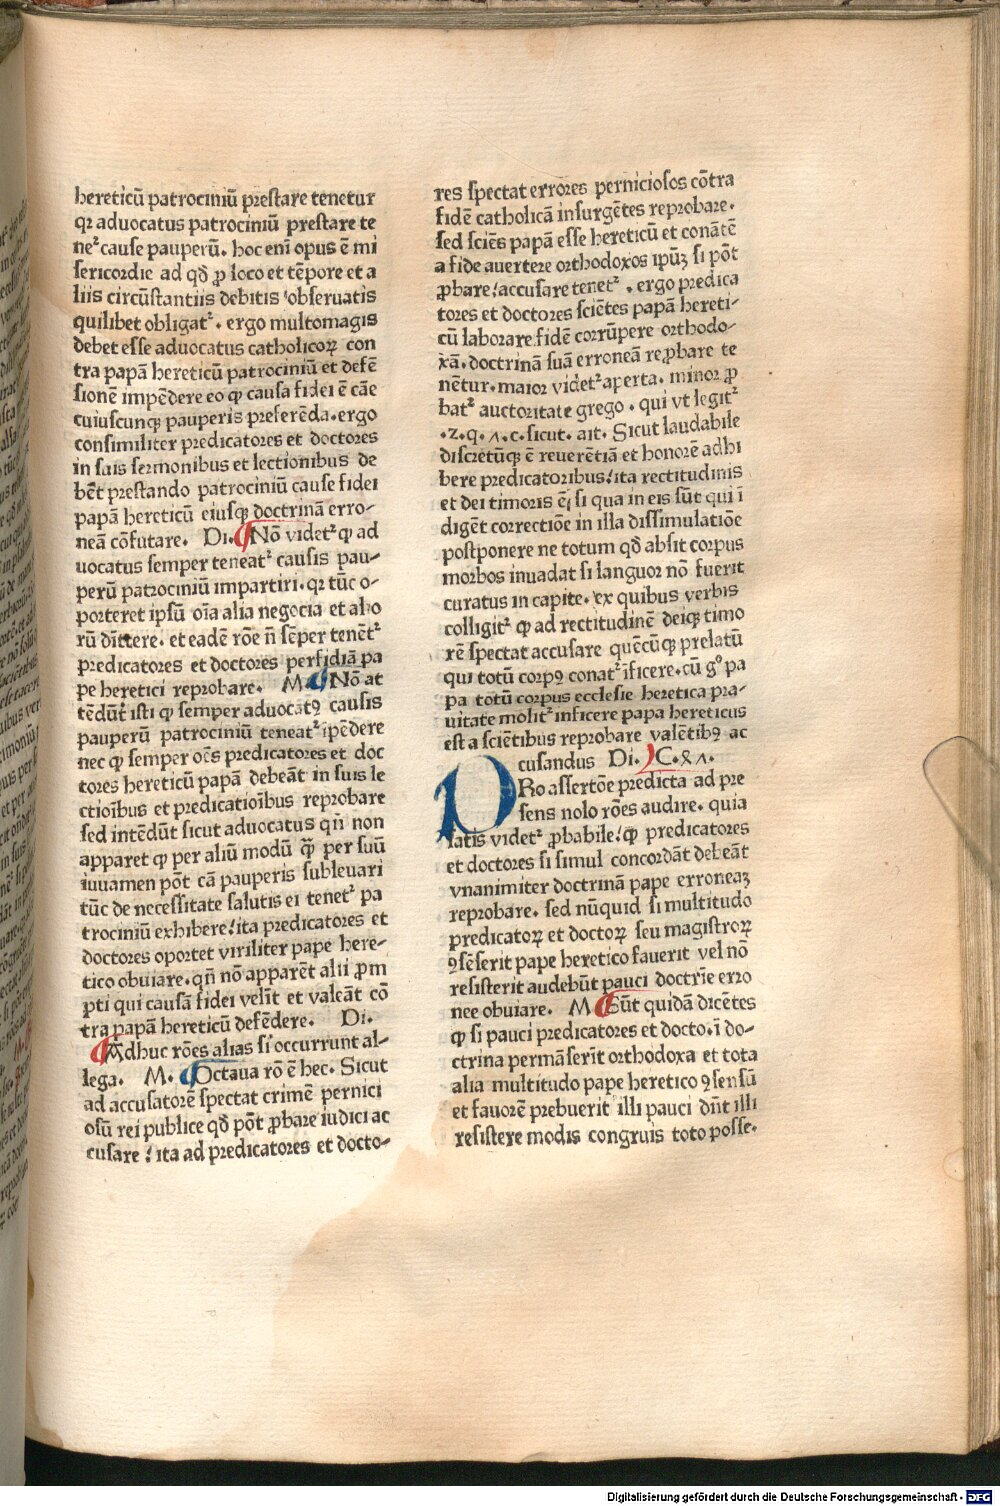 hereticū patrociniū prestare tenetur
qꝛ aduocatus patrociniū prestare te
neᷣ cause pauperū. hoc enī opus ē mi
sericordie ad qđ ꝓ loco et tēpore et a
liis circūstantiis debitis obseruatis
quilibet obligatᷣ. ergo multomagis
debet esse aduocatus catholicoꝝ con
tra papā hereticū patrociniū et defē
sionē impēdere eo ꝙ causa fidei ē cāe
cuiuscunqꝫ pauperis preferēda. ergo
consimiliter predicatores et doctores
in suis sermonibus et lectionibus de
bēt prestando patrociniū cause fidei
papā hereticū eiusqꝫ doctrinā erro-
neā cōfutare. Di. Nō videtᷣ ꝙ ad
uocatus semper teneatᷣ causis pau-
perū patrociniū impartiri. qꝛ tūc o-
porteret ipsū oīa alia negocia et alio
rū dīttere. et eadē rōe n̄ sēper tenētᷣ
predicatores et doctores perfidiā pa
pe heretici reprobare. M. Nō at
tēdūt isti ꝙ semper aduocatꝰ causis
pauperū patrociniū teneatᷣ īpēdere
nec ꝙ semper oēs predicatores et doc
tores hereticū papā debeāt in suis le
ctioībus et predicatioībus reprobare
sed intēdūt sicut aduocatus qn̄ non
apparet ꝙ per aliū modū q̄ꝫ per suū
iuuamen pōt cā pauperis subleuari
tūc de necessitate salutis ei tenetᷣ pa
trociniū exhibere! ita predicatores et
doctores oportet viriliter pape here-
tico obuiare. qn̄ nō apparēt alii ꝓm
pti qui causā fidei velīt et valeāt cō
tra papā hereticū defēdere. Di.
Adhuc rōes alias si occurrunt al-
lega. M. Octaua ro ē hec. Sicut
ad accusatorē spectat crimē pernici
osū rei publice qđ pōt ꝓbare iudici ac
cusare! ita ad predicatores et docto-
res spectat errores perniciosos cōtra
fidē catholicā insurgētes reprobare.
sed sciēs papā esse hereticū et conatē
a fide auertere orthodoxos ipūꝫ si pōt
ꝓbare! accusare tenetᷣ. ergo predica
tores et doctores sciētes papā hereti-
cū laborare fidē corrūpere orthodo-
xā. doctrinā suā erroneā reꝓbare te
nētur. maior videtᷣ aperta. minor ꝓ
batᷣ auctoritate grego. qui vt legitᷣ
.z. q. ʌ. c. sicut. ait. Sicut laudabile
discretūqꝫ ē reuerētiā et honorē adhi
bere predicatoribus! ita rectitudinis
et dei timoris ē; si qua in eis sūt qui ī
digēt correctiōe in illa dissimulatiōe
postponere ne totum qđ absit corpus
morbos inuadat si languor nō fuerit
curatus in capite. ex quibus verbis
colligitᷣ ꝙ ad rectitudinē deiqꝫ timo
rē spectat accusare quēcūqꝫ prelatū
qui totū corpꝰ conatᷣ īficere. cū gͦ pa
pa totū corpus ecclesie heretica pra-
uitate molitᷣ inficere papa hereticus
est a sciētibus reprobare valētibꝰ ac
cusandus Di. C. & ʌ.
PRo assertōe predicta ad pre
sens nolo rōes audire. quia
satis videtᷣ ꝓbabile! ꝙ predicatores
et doctores si simul concordāt debeāt
vnanimiter doctrinā pape erroneaꝫ
reprobare. sed nūquid si multitudo
predicatoꝝ et doctoꝝ seu magistroꝝ
ꝯsēserit pape heretico fauerit vel nō
resisterit audebūt pauci doctrīe erro
nee obuiare. M Sūt quidā dicētes
ꝙ si pauci predicatores et docto. ī do-
ctrina permāserīt orthodoxa et tota
alia multitudo pape heretico ꝯsensū
et fauorē prebuerit illi pauci dn̄t illi
resistere modis congruis toto posse.
Digitalisierung gefördert durch die Deutsche Forschungsgemeinschaft - DFG